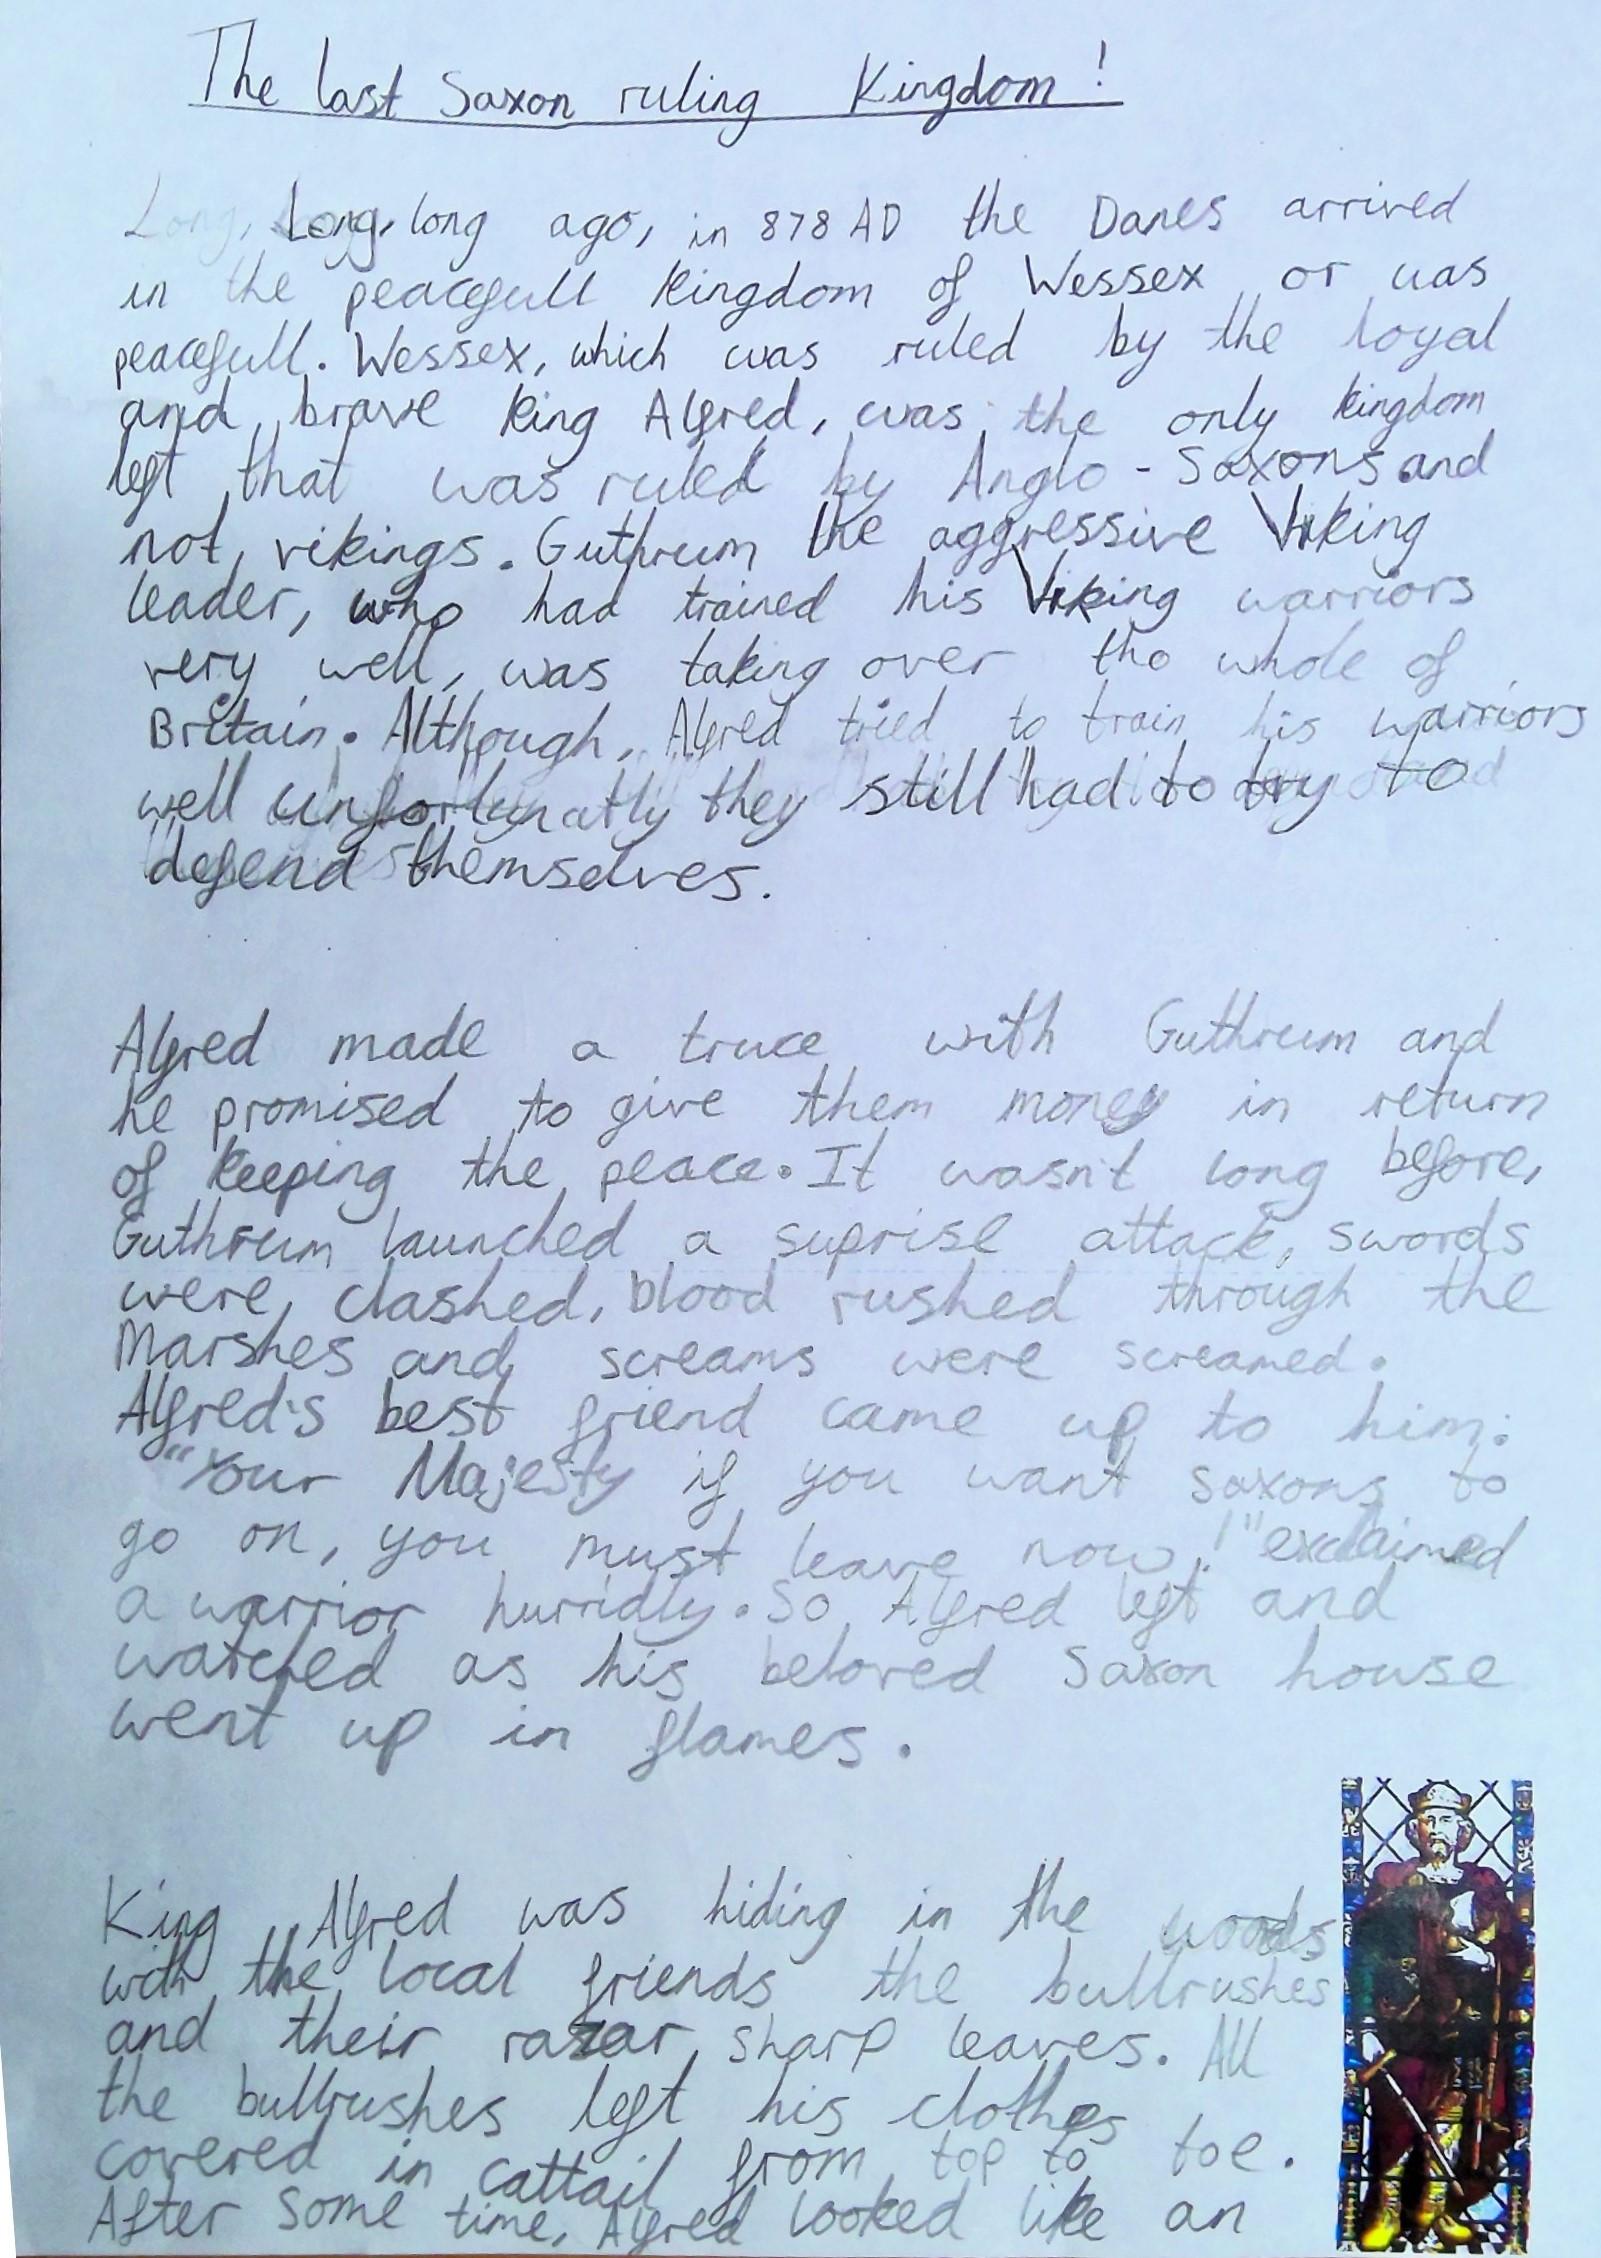 The last Saxon ruling Kingdom!
Long, Long, long ago, in 878 AD the Danes arrived
in the peacefull kingdom of Wessex or was
peacefull. Wessex, which was ruled by the loyal
and brave king Alfred, was the only kingdom
left that was ruled by Anglo - Saxons and
not vikings. Guthrum the aggressive Viking
leader, who had trained his Viking warriors
very well, was taking over the whole of
Britain. Although, Alfred tried to train his warriors
well unfortunatly they still had to try to
defend themselves.
Alfred made a truce with Guthrum and
he promised to give them money in return
of keeping the peace. It wasn't long before,
Guthrum launched a suprise attack, swords
were clashed, blood rushed through the
Marshes and screams were screamed.
Alfred's best friend came up to him:
"Your Majesty if you want saxons to
go on, you must leave now!" exclaimed
a warrior hurridly. So Alfred left and
watched as his beloved Saxon house
went up in flames.
King Alfred was hiding in the woods
with the local friends the bullrushes
and their razar sharp leaves. All
the bullrushes left his clothes
covered in cattail from top to toe.
After some time, Alfred looked like an